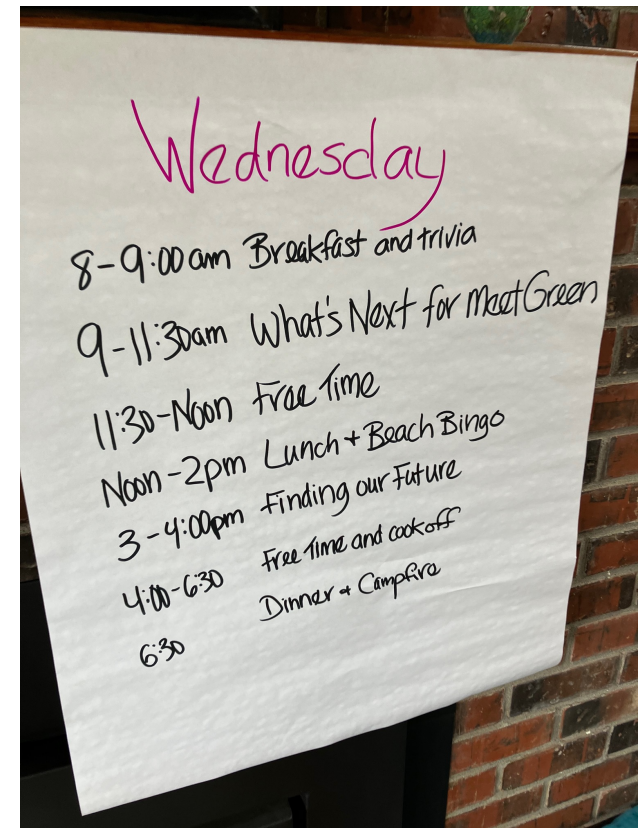 Wednesday
8-9:00am Breakfast and trivia
9-11:30am What's Next for MeetGreen
11:30-Noon Free Time
Noon-2pm Lunch + Beach Bingo
3-4:00pm Finding our Future
4:00-6:30 Free Time and cook off
6:30 Dinner + Campfire